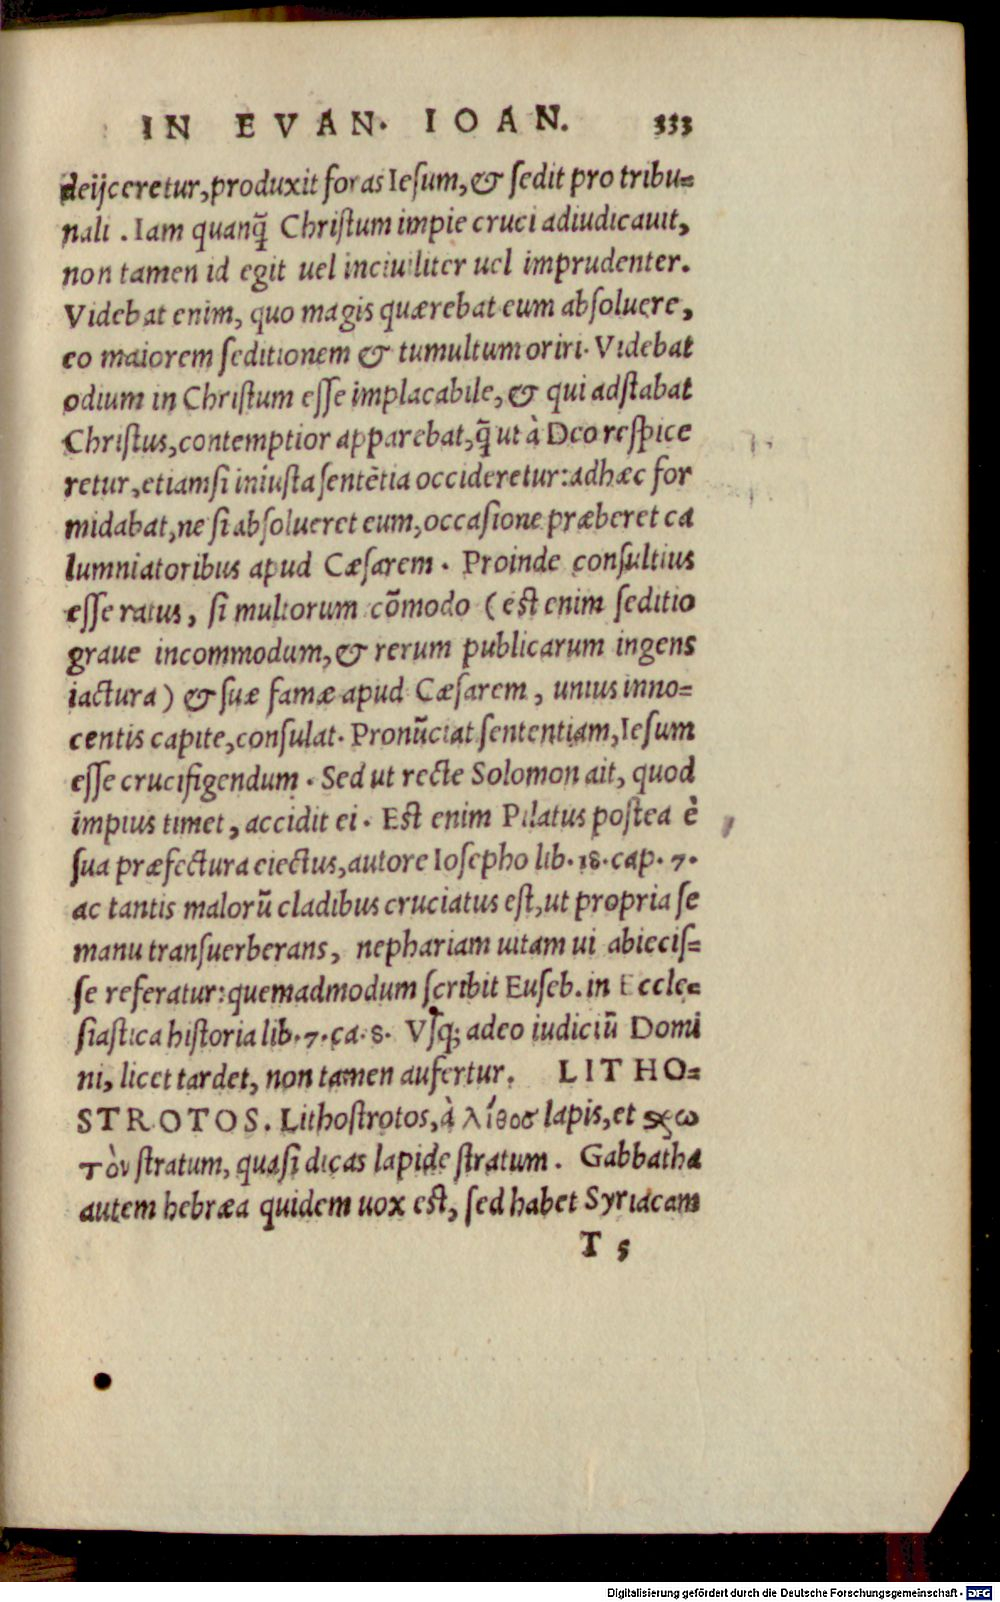 IN EVAN. IOAN. 333
deijceretur, produxit foras Iesum, & sedit pro tribu=
nali. Iam quanq̃ Christum impie cruci adiudicauit,
non tamen id egit uel inciuiliter uel imprudenter.
Videbat enim, quo magis quærebat eum absoluere,
eo maiorem seditionem & tumultum oriri. Videbat
odium in Christum esse implacabile, & qui adstabat
Christus, contemptior apparebat, q̃ ut à Deo respice
retur, etiamsi iniusta sentẽtia occideretur: adhæc for
midabat, ne si absolueret eum, occasione præberet ca
lumniatoribus apud Cæsarem. Proinde consultius
esse ratus, si multorum cõmodo (est enim seditio
graue incommodum, & rerum publicarum ingens
iactura) & suæ famæ apud Cæsarem, unius inno=
centis capite, consulat. Pronũciat sententiam, Iesum
esse crucifigendum. Sed ut recte Solomon ait, quod
impius timet, accidit ei. Est enim Pilatus postea è
sua præfectura eiectus, autore Iosepho lib. 18. cap. 7.
ac tantis malorũ cladibus cruciatus est, ut propria se
manu transuerberans, nephariam uitam ui abiecis=
se referatur: quemadmodum scribit Euseb. in Eccle=
siastica historia lib. 7. ca. 8. Vsq; adeo iudiciũ Domi
ni, licet tardet, non tamen aufertur. LITHO=
STROTOS. Lithostrotos, à λίθοσ lapis, et ϛρω
τὸν stratum, quasi dicas lapide stratum. Gabbatha
autem hebræa quidem uox est, sed habet Syriacam
T 5
Digitalisierung gefördert durch die Deutsche Forschungsgemeinschaft - DFG